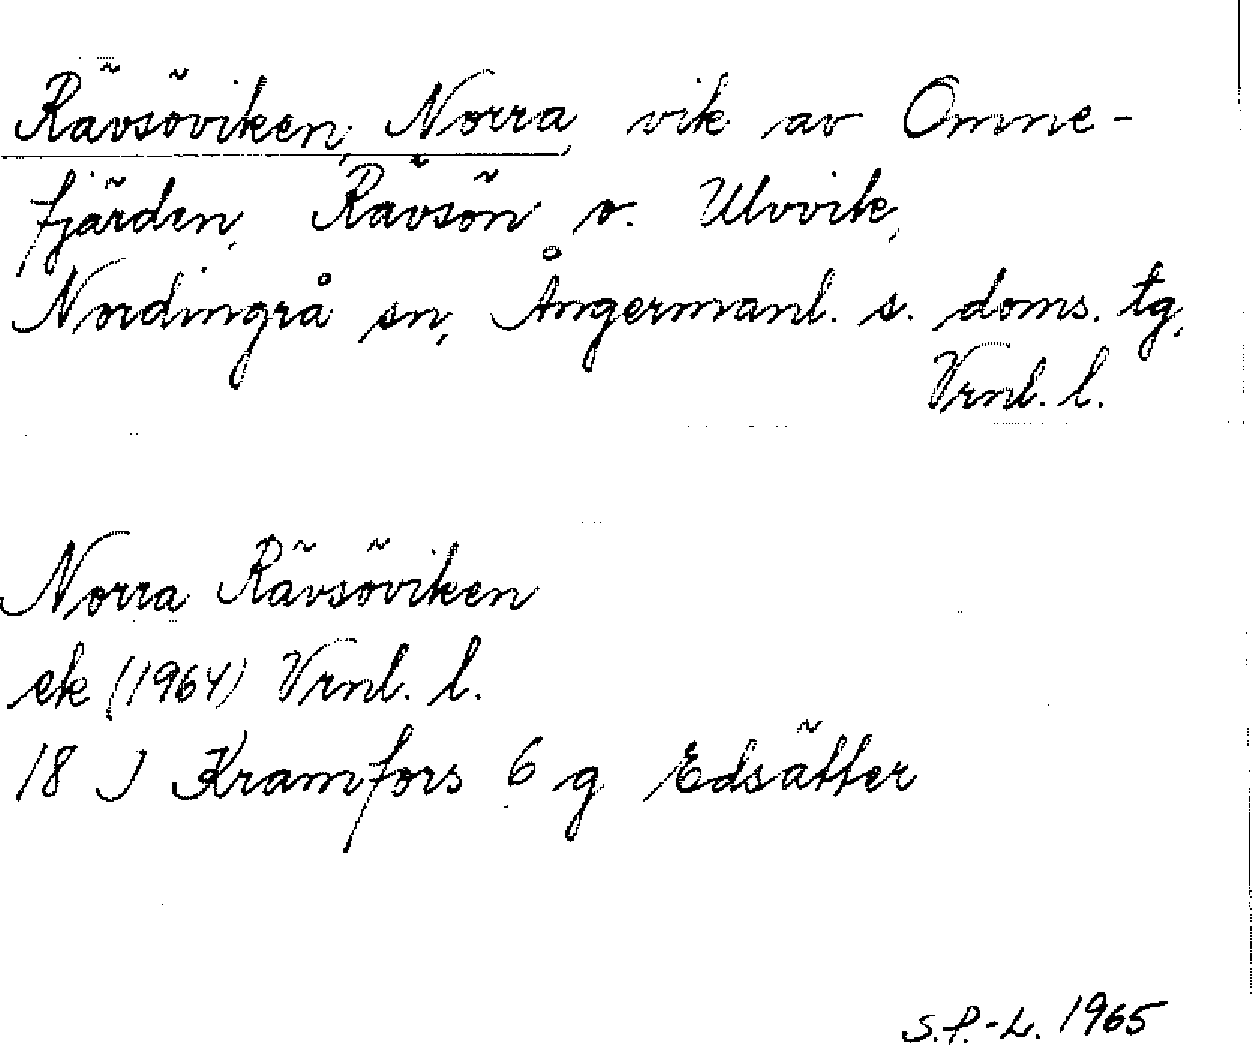 Rävsöviken, Norra, vik av Omne-
fjärden, Rävsön o. Ulvvik,
Nordingrå sn, Ångermanl. s. doms. tg,
Vrnl. l.
Norra Rävsöviken
ek (1964) Vrnl. l.
18 J Kramfors 6 g Edsätter
S.P.-L. 1965